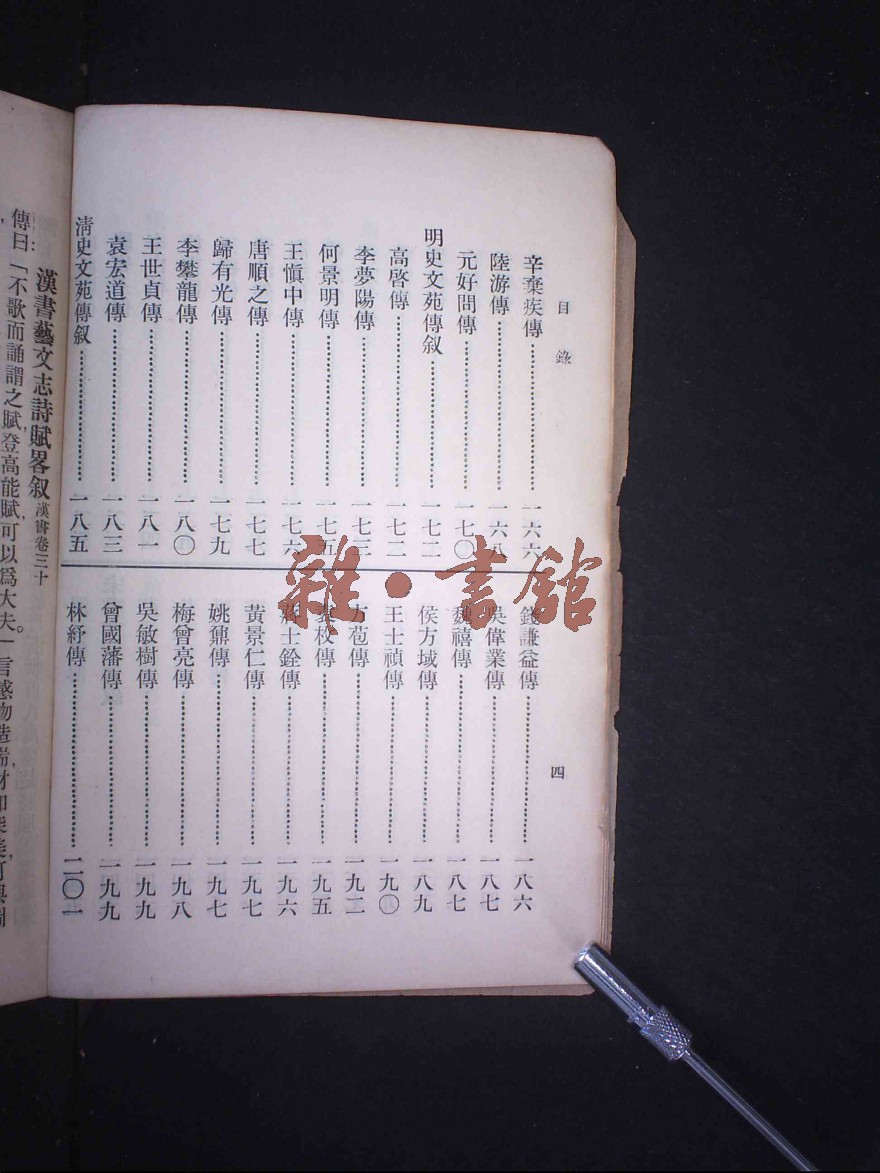 目錄
四
辛棄疾傳………一六六
陸游傳………一六八
元好問傳………一七〇
明史文苑傳叙………一七二
高啓傳………一七二
李夢陽傳………一七三
何景明傳………一七五
王愼中傳………一七六
唐順之傳………一七七
歸有光傳………一七九
李攀龍傳………一八〇
王世貞傳………一八一
袁宏道傳………一八三
淸史文苑傳叙………一八五
錢謙益傳………一八六
吳偉業傳………一八七
魏禧傳………一八七
侯方域傳………一八九
王士禎傳………一九〇
方苞傳………一九二
袁枚傳………一九五
蔣士銓傳………一九六
黃景仁傳………一九七
姚鼐傳………一九七
梅曾亮傳………一九八
吳敏樹傳………一九九
曾國藩傳………一九九
林紓傳………二〇一
漢書藝文志詩賦畧叙 漢書卷三十
傳曰「不歌而誦謂之賦，登高能賦，可以爲大夫。」言感物造耑，材知深美，可與圖
雜·書館